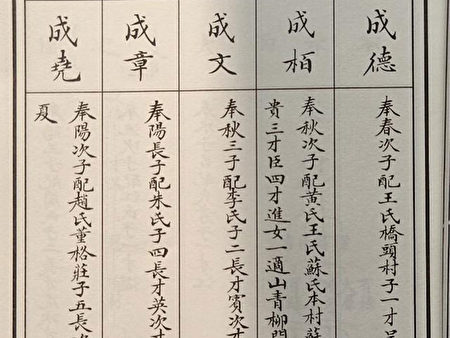 成德
奉春次子配王氏橋頭村子一才
成栢
奉秋次子配黃氏王氏蘇氏本村
貴三才臣四才進女一適山青柳
成文
奉秋三子配李氏子二長才賓次才
成章
奉陽長子配朱氏子四長才英次才
成堯
奉陽次子配趙氏董格莊子五長
夏